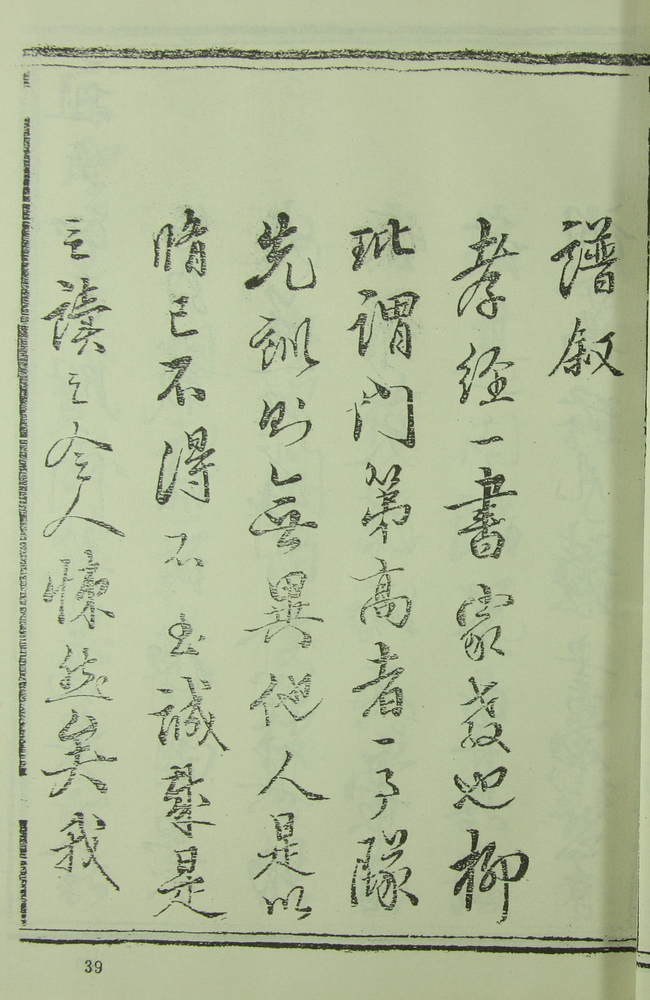 譜叙
孝經一書家教也柳
玭謂門第高者一事隊
先訓則無異他人是以
脩己不得不至誠哉是
言讀之令人悚然矣我
39